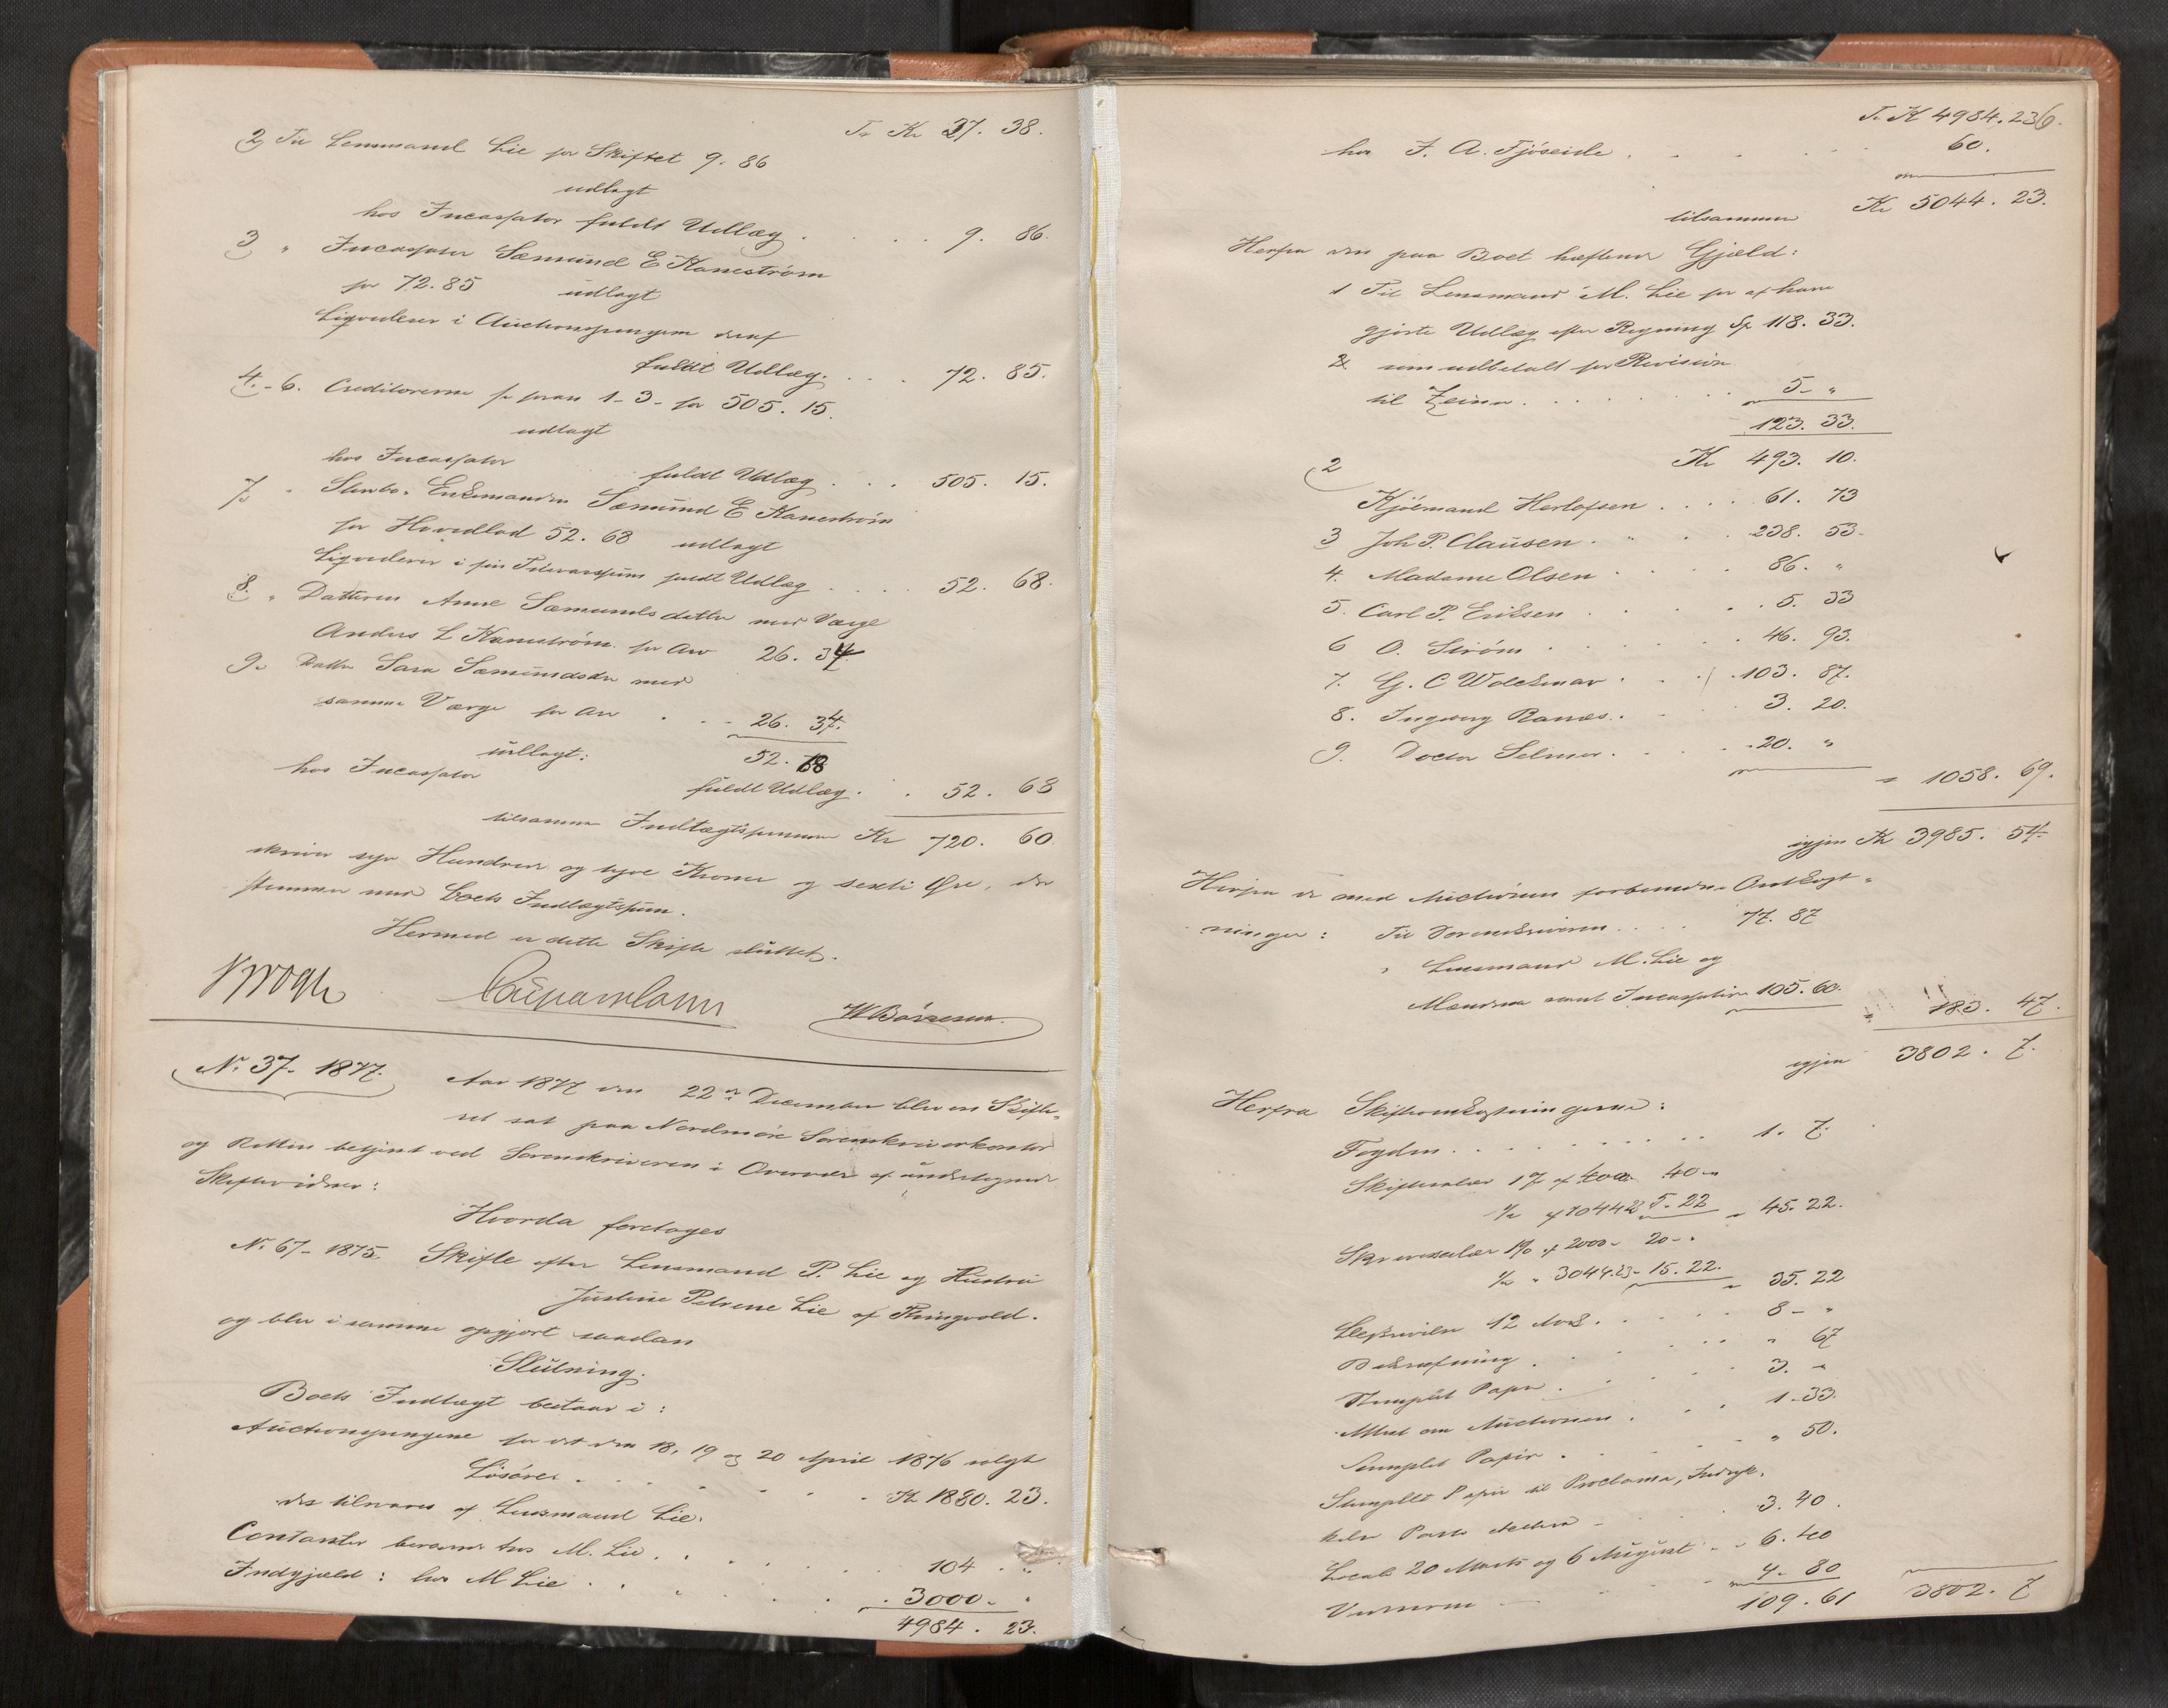 Tr Kr 27. 38.
2, Til Lensmand Lie for Skiftet 9. 86
udlagt
hos Incassator fuldt Udlæg . . . . 9. 86.
3 " Incassator Sæmund E Kanestrøm
for 72.85 udlagt
Ligvederer i Auctionspengene deraf
fuldt Udlæg. . . . 72. 85.
4.-6. Creditorerne foran 1-3- for 505. 15.
udlagt
hos Incassator fuldt Udlæg . . . 505. 15.
7, " Sterbo. Enkemanden Sæmund E Kanestrøm
for Hovedlod 52. 68 udlagt
Ligvederer i sin Tilsvarssum fuldt Udlæg . . . . 52. 68.
8. " Datteren Anne Sæmundsdatter med Værge
Anders L Kanestrøm for Arv 26. 34
9. Datter Sara Sæmundsdtr med
samme Værge for Arv . . . 26. 34.
52. 68
udlagt:
hos Incassator fuldt Udlæg . . 52. 68
tilsammen Indtægtssummen Kr 720. 60
skriver syv Hundrede og tyve Kroner og sexti Øre, der
stemmer med Boets Indtægtssum.
Hermed er dette Skifte sluttet.
Krogh
No 37- 1877. Aar 1877 den 22de December blev en Skifte-
ret sat paa Nordmøre Sorenskriverkontor
og Retten betjent ved Sorenskriveren i Overvær af undertegnede
Skiftevidner:
Hvorda foretoges
No 67- 1875. Skifte efter Lensmand P. Lie og Hustru
Justine Petrine Lie af Thingvold.
og blev i samme opgjort saadan
Slutning.
Boets Indtægt bestaar i:
Auctionspengene for det den 18, 19 og 20 April 1876 solgt
Løsøre . . . . . . Kr 1880. 23.
der tilsvares af Lensmand Lie.
Contanter beroende hos M. Lie . . . . . 104 . "
Indgjæld: hos M Lie . . . . . 3000. "
4984. 23.
Tr Kr 4984. 23
hos J. A. Fjøseide . . . . 60.
tilsammen Kr 5044. 23.
Herfra den paa Boet heftende Gjæld:
1 Til Lensmand M. Lie for af ham
gjorte Udlæg efter Regning Kr 118. 33.
som udbetalt for Revision
til Zeiner . . . . . . 5- "
123. 33.
2 Kr 493. 10.
Kjøbmand Herlofsen . . . . 61. 73
3 Joh P. Clausen . . . . 238. 53.
4. Madame Olsen . . . . 86. "
5. Carl P. Eriksen . . . . 5. 33
6 O. Strøm . . . . 46. 93.
7. G. C Wolckmar . . . 103. 87.
8. Ingeborg Ranæs . . . 3. 20.
9. Doctor Selmer . . . . 20. "
" 1058. 69.
igjen Kr 3985. 54.
Herfra de med Auctionen forbundne Omkost-
ninger: Til Sorenskriveren . . . . 77. 87
" Lensmand M. Lie og
Mændene samt Incassation 105. 60.
183. 47.
igjen 3802. 7.
Herfra Skifteomkostningerne:
Fogden . . . . . . . . 1. 7.
Skiftesalær 1% af 4000 40 "
1/2 af 1044 23 5. 22 " 45. 22.
Skriversalær 1% af 2000 - 20 - "
1/2 " 3044.23 - 15. 22. " 35. 22
12 Ark . . . . . 8 - "
Bekræftning . . . . . " 67
Stemplet Papir . . . . 3. "
Attest om Auctionen . . . 1. 33.
Stemplet Papir . . . . " 50.
Stemplet Papir til Proclama, Indryk-
kelse Porto . . 3. 40.
Local 20 Marts og 6 August . . 6. 40
4. 80
109. 61 3802. 7